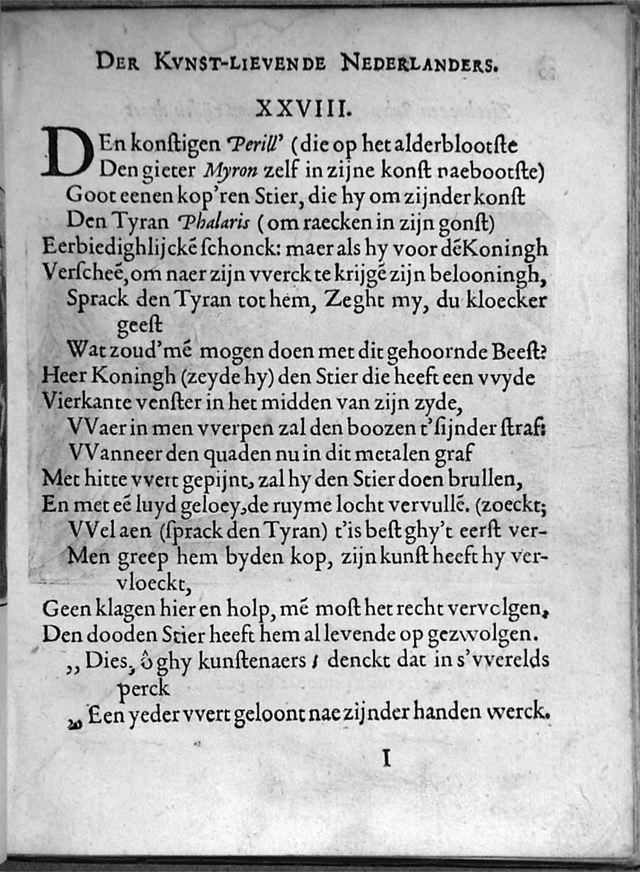 DER KVNST-LIEVENDE NEDERLANDERS.
XXVIII.
DEn konſtigen Perill' (die op het alderblootſte
Den gieter Myron zelf in zijne konſt naebootſte)
Goot eenen kop'ren Stier, die hy om zijnder konſt
Den Tyran Phalaris (om raecken in zijn gonſt)
Eerbiedighlijckẽ ſchonck: maer als hy voor dẽ Koningh
Verſcheẽ, om naer zijn vverck te krijgẽ zijn belooningh,
Sprack den Tyran tot hem, Zeght my, du kloecker
geeſt
Wat zoud'mẽ mogen doen met dit gehoornde Beeſt?
Heer Koningh (zeyde hy) den Stier die heeft een vvyde
Vierkante venſter in het midden van zijn zyde,
VVaer in men vverpen zal den boozen t'ſijnder ſtraf;
VVanneer den quaden nu in dit metalen graf
Met hitte vvert gepijnt, zal hy den Stier doen brullen,
En met eẽ luyd geloey, de ruyme locht vervullẽ. (zoeckt;
VVel aen (ſprack den Tyran) t'is beſt ghy't eerſt ver-
Men greep hem byden kop, zijn kunſt heeft hy ver-
vloeckt,
Geen klagen hier en holp, mẽ moſt het recht vervolgen,
Den dooden Stier heeft hem al levende op gezwolgen.
,, Dies, ô ghy kunſtenaers / denckt dat in s'vverelds
perck
,, Een yeder vvert geloont nae zijnder handen werck.
I